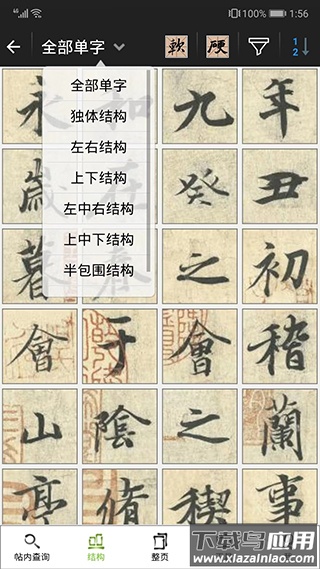 4G 100% 1:56
全部单字 軟 硬 1 2
全部单字
独体结构
左右结构
上下结构
左中右结构
上中下结构
半包围结构
永 和 九 年
歲 癸 丑
暮 春 之 初
會 于 會 稽
山 陰 之 蘭
亭 脩 稧 事
帖内查询 结构 整页
下载鸟应用
www.xiazainiao.com